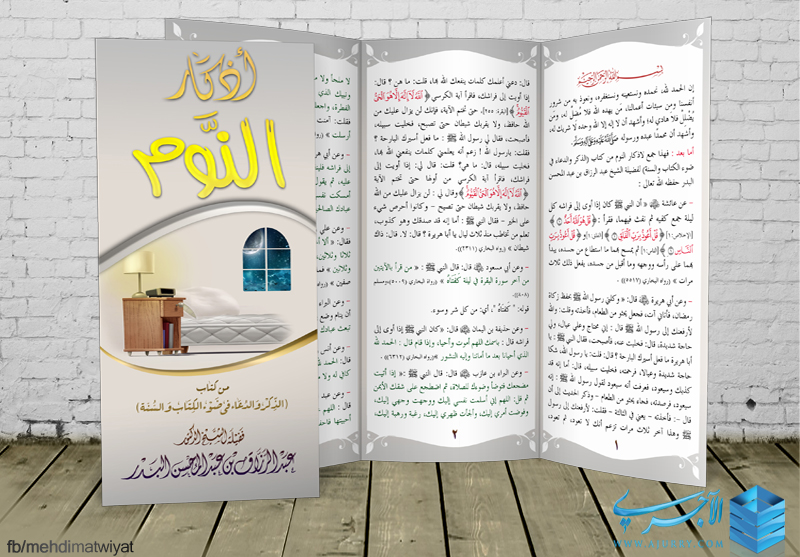 أذكار
النوَّم
من كتاب
(الذكر والدعاء في ضوء الكتاب والسنة)
فضيلة الشيخ الدكتور
عبد الرزاق بن عبد المحسن البدر
بسم الله الرحمن الرحيم
إن الحمد لله، نحمده ونستعينه ونستغفره، ونعوذ به من شرور
أنفسنا ومن سيئات أعمالنا، من يهده الله فلا مُضل له، ومن
يُضلل فلا هادي له؛ وأشهد أن لا إله إلا الله وحده لا شريك له،
وأشهد أن محمدًا عبده ورسوله ﷺ.
أما بعد : فهذا جمع لأذكار النوم من كتاب (الذكر والدعاء في
ضوء الكتاب والسنة) لفضيلة الشيخ عبد الرزاق بن عبد المحسن
البدر حفظه الله تعالى :
- عن عائشة ؓ « أن النبي ﷺ كان إذا أوى إلى فراشه كل
ليلة جمع كفيه ثم نفث فيهما، فقرأ : ﴿قُلْ هُوَ اللَّهُ أَحَدٌ ۝﴾
[الإخلاص:١] ﴿قُلْ أَعُوذُ بِرَبِّ الْفَلَقِ ۝﴾ [الفلق:١] و ﴿قُلْ أَعُوذُ بِرَبِّ
النَّاسِ ۝﴾ [الناس:١] ثم يمسح بهما ما استطاع من جسده، يبدأ
بهما على رأسه ووجهه وما أقبل من جسده، يفعل ذلك ثلاث
مرات » (رواه البخاري (٥٠١٧))
- وعن أبي هريرة ؓ قال: « وكلني رسول الله ﷺ بحفظ زكاة
رمضان، فأتاني آت، فجعل يحثو من الطعام، فأخذته وقلت: والله
لأرفعنك إلى رسول الله ﷺ قال: إني محتاج وعلي عيال، ولي
حاجة شديدة، قال: فخليت عنه، فأصبحت، فقال النبي ﷺ : يا
أبا هريرة ما فعل أسيرك البارحة ؟ قال: قلت: يا رسول الله، شكا
حاجة شديدة وعيالا، فرحمته، فخليت سبيله، قال: أما إنه قد
كذبك وسيعود، فعرفت أنه سيعود لقول رسول الله ﷺ : إنه
سيعود، فرصدته، فجاء يحثو من الطعام - وذكر الحديث إلى أن
قال -: فأخذته - يعني في الثالثة - فقلت: لأرفعنك إلى رسول الله
ﷺ وهذا آخر ثلاث مرات تزعم أنك لا تعود، ثم تعود،
١
قال: دعني أعلمك كلمات ينفعك الله بها، قلت: ما هن ؟ قال:
إذا أويت إلى فراشك، فاقرأ آية الكرسي ﴿اللَّهُ لَا إِلَهَ إِلَّا هُوَ الْحَيُّ
الْقَيُّومُ﴾ [البقرة: ٢٥٥]، حتى تختم الآية، فإنك لن يزال عليك من
الله حافظ، ولا يقربك شيطان حتى تصبح، فخليت سبيله،
فأصبحت، فقال لي رسول الله ﷺ : ما فعل أسيرك البارحة ؟
فقلت: يارسول الله ! زعم أنه يعلمني كلمات ينفعني الله بها،
فخليت سبيله، قال: ما هي؟ قلت: قال لي: إذا أويت إلى
فراشك، فاقرأ آية الكرسي من أولها حتى تختم الآية
﴿اللَّهُ لَا إِلَهَ إِلَّا هُوَ الْحَيُّ الْقَيُّومُ﴾ وقال لي : لن يزال عليك من الله
حافظ، ولا يقربك شيطان حتى تصبح - وكانوا أحرص شيء
على الخير - فقال النبي ﷺ : أما إنه قد صدقك وهو كذوب،
تعلم من تخاطب منذ ثلاث ليال يا أبا هريرة ؟ قال: لا. قال: ذاك
شيطان » (رواه البخاري (٢٣١١))
- وعن أبي مسعود ؓ قال: قال النبي ﷺ : « من قرأ بالآيتين
من آخر سورة البقرة في ليلة كفتاه » (رواه البخاري (٥٠٠٩) ومسلم
(٨٠٨))
قوله: " كفتاه "، أي: من كل شر وسوء.
- وعن حذيفة بن اليمان ؓ قال: «كان النبي ﷺ إذا أوى إلى
فراشه قال : باسمك اللهم أموت وأحيا، وإذا قام قال : الحمد لله
الذي أحيانا بعد ما أماتنا وإليه النشور » (رواه البخاري (٦٣١٢))
- وعن البراء بن عازب ؓ قال: قال النبي ﷺ : « إذا أتيت
مضجعك فتوضأ وضوءك للصلاة، ثم اضطجع على شقك الأيمن
ثم قال: اللهم إني أسلمت نفسي إليك، ووجهت وجهي إليك،
وفوضت أمري إليك، وألجأت ظهري إليك، رغبة ورهبة إليك،
٢
fb/mehdimatwiyat
الآجري
WWW.AJURRY.COM